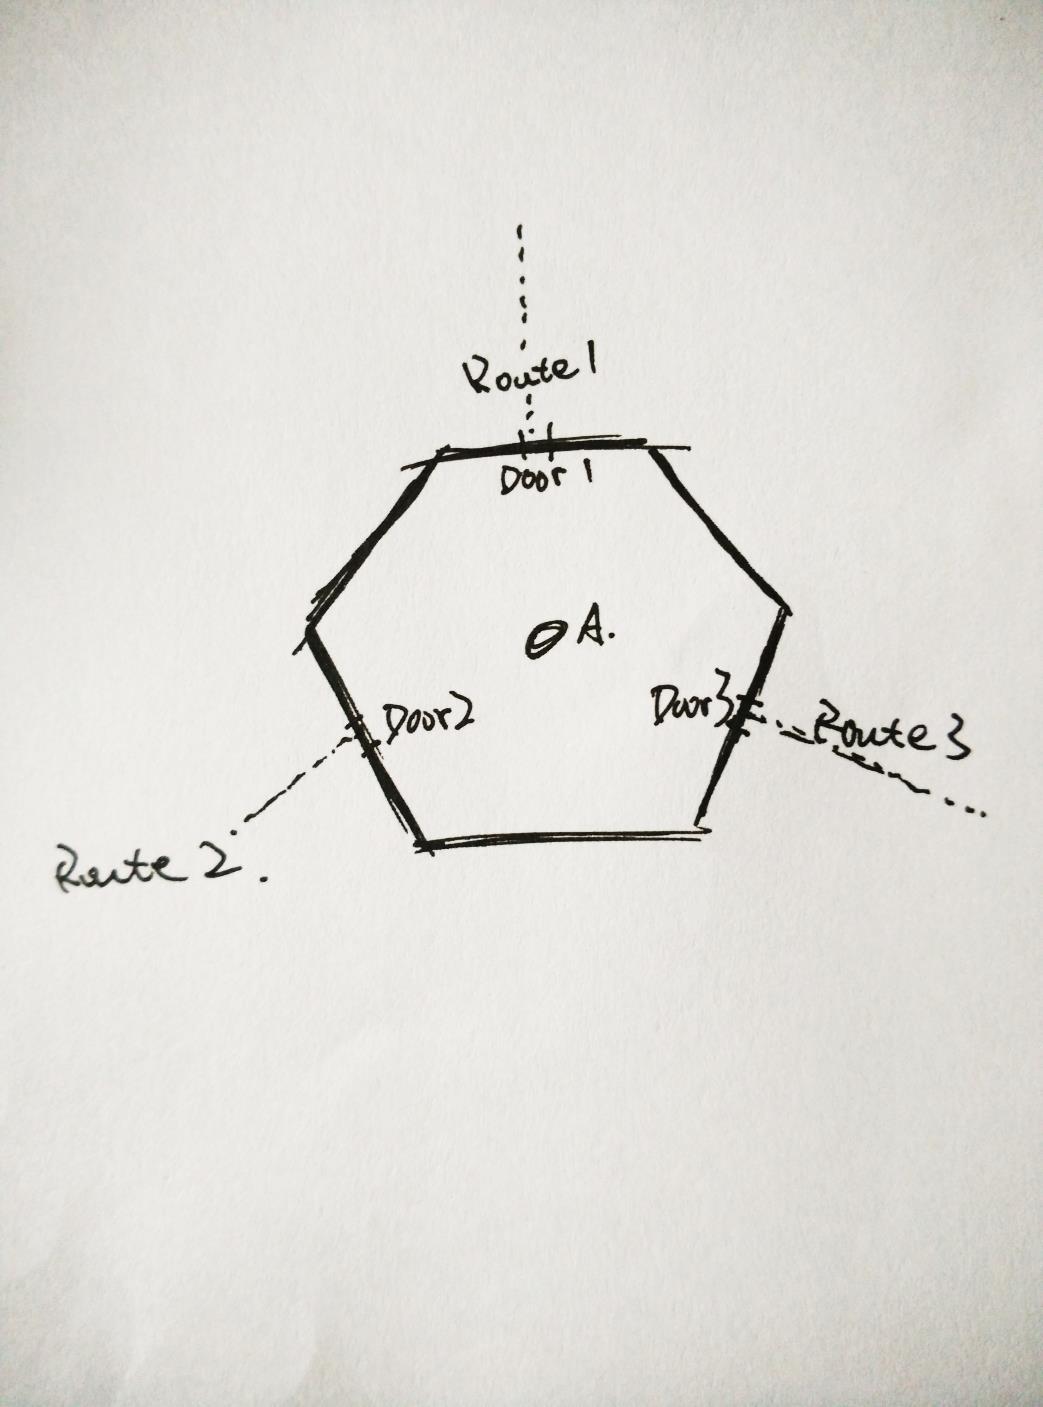 Route 1
Door 1
A.
Door 2
Door 3
Route 3
Route 2.